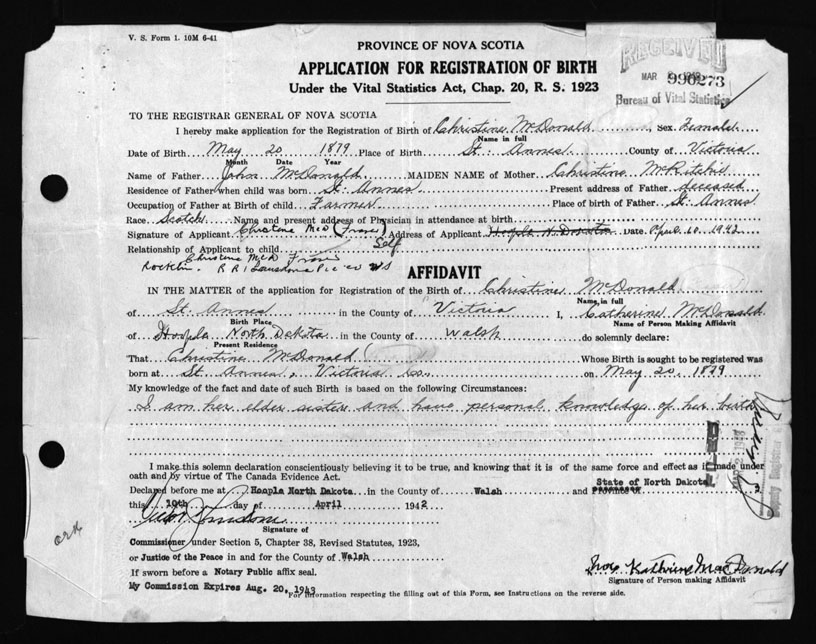 V. S. Form 1. 10M 6-41
PROVINCE OF NOVA SCOTIA
APPLICATION FOR REGISTRATION OF BIRTH
Under the Vital Statistics Act, Chap. 20, R. S. 1923
RECEIVED
MAR
990273
Bureau of Vital Statistics
TO THE REGISTRAR GENERAL OF NOVA SCOTIA
I hereby make application for the Registration of Birth of Christine McDonald, Sex Female
Name in full
Date of Birth May 20 1879 Place of Birth St. Annes County of Victoria
Month Date Year
Name of Father John McDonald MAIDEN NAME of Mother Christine McRitchie
Residence of Father when child was born St. Annes Present address of Father deceased
Occupation of Father at Birth of child Farmer Place of birth of Father St. Annes
Race Scotch Name and present address of Physician in attendance at birth
Signature of Applicant Christene McD (Fraser) Address of Applicant Hoople N. Dakota Date April 10 1942
Relationship of Applicant to child Self
Christine McD Fraser
Rocklin. R R 1 Pic co NS
AFFIDAVIT
IN THE MATTER of the application for Registration of the Birth of Christine McDonald
Name in full
of St. Annes in the County of Victoria I, Catherine McDonald
Birth Place Name of Person Making Affidavit
of Hoople North Dakota in the County of Walsh do solemnly declare:
Present Residence
That Christine McDonald Whose Birth is sought to be registered was
born at St. Annes, Victoria Co. on May 20, 1879
My knowledge of the fact and date of such Birth is based on the following Circumstances:
I am her elder sister and have personal knowledge of her birth
I make this solemn declaration conscientiously believing it to be true, and knowing that it is of the same force and effect as if made under
oath and by virtue of The Canada Evidence Act.
Declared before me at Hoople North Dakota in the County of Walsh and State of North Dakota
this 10th day of April 1942
Signature of
Commissioner under Section 5, Chapter 38, Revised Statutes, 1923,
or Justice of the Peace in and for the County of Walsh
If sworn before a Notary Public affix seal.
My Commission Expires Aug. 20, 1943
Mrs Kathrine MacDonald
Signature of Person making Affidavit
For information respecting the filling out of this Form, see Instructions on the reverse side.
FILED
Deputy Registrar